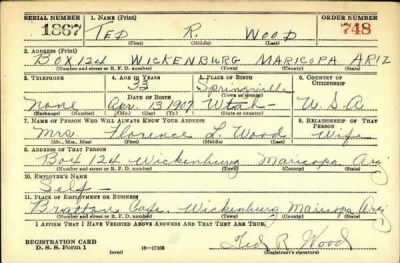 SERIAL NUMBER 1. NAME (Print) ORDER NUMBER
1867 TED R. WOOD 748
(First) (Middle) (Last)
2. ADDRESS (Print)
BOX 124 WICKENBURG MARICOPA ARIZ
(Number and street or R. F. D. number) (Town) (County) (State)
3. TELEPHONE 4. AGE IN YEARS 5. PLACE OF BIRTH 6. COUNTRY OF CITIZENSHIP
33 Springville
DATE OF BIRTH (Town or county)
None Apr. 13 1907 Utah U. S. A
(Exchange) (Number) (Mo.) (Day) (Yr.) (State or country)
7. NAME OF PERSON WHO WILL ALWAYS KNOW YOUR ADDRESS 8. RELATIONSHIP OF THAT PERSON
Mrs Florence L. Wood Wife
(Mr., Mrs., Miss) (First) (Middle) (Last)
9. ADDRESS OF THAT PERSON
Box 124 Wickenburg Maricopa Ariz
(Number and street or R. F. D. number) (Town) (County) (State)
10. EMPLOYER'S NAME
Self-
11. PLACE OF EMPLOYMENT OR BUSINESS
Cafe. Wickenburg Maricopa Ariz
(Number and street or R. F. D. number) (Town) (County) (State)
I AFFIRM THAT I HAVE VERIFIED ABOVE ANSWERS AND THAT THEY ARE TRUE.
REGISTRATION CARD
D. S. S. Form 1 (over) 16-17105 Ted R Wood
(Registrant's signature)